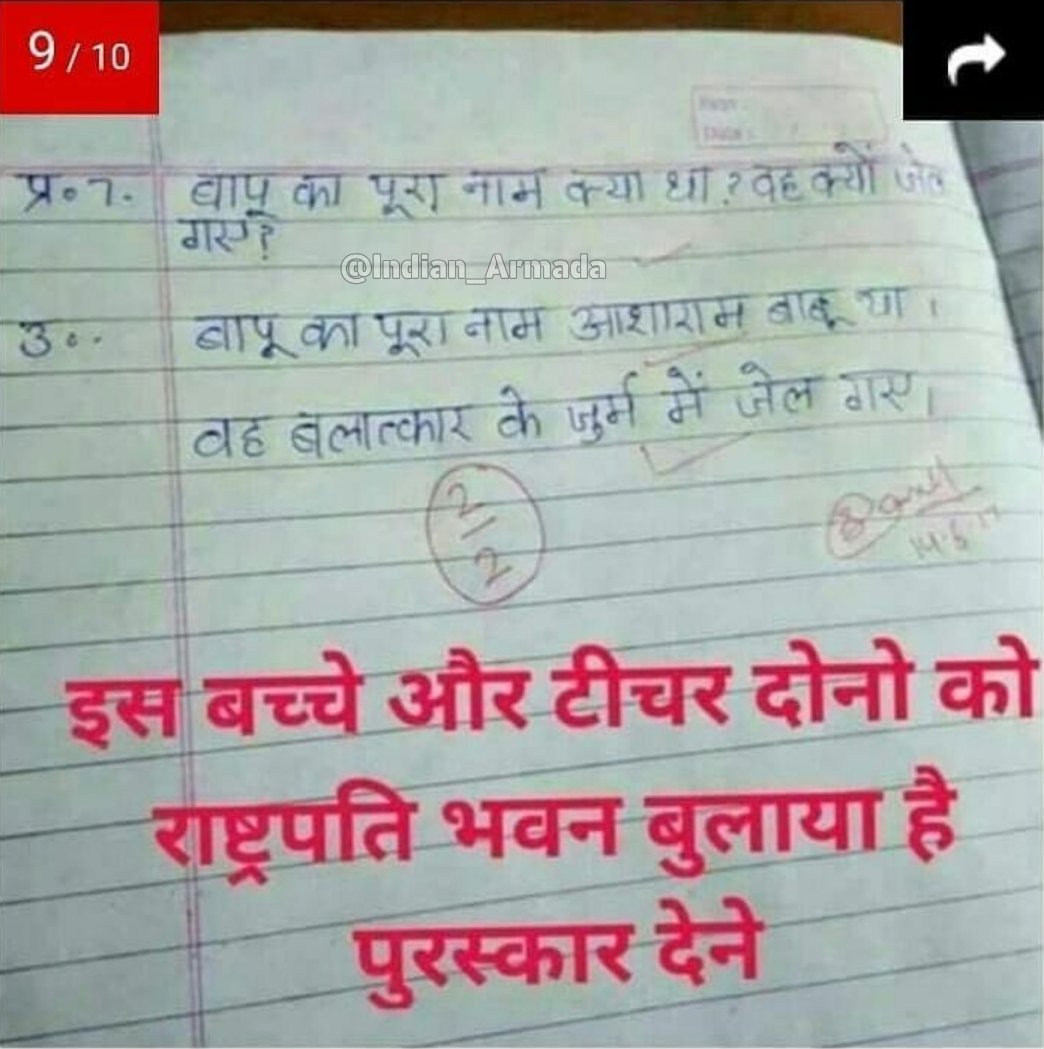 9 / 10
प्र॰7. बापू का पूरा नाम क्या था? वह क्यों जेल
गए?
@Indian_Armada
उ॰. बापू का पूरा नाम आशाराम बाबू था ।
वह बलात्कार के जुर्म में जेल गए।
2
2
इस बच्चे और टीचर दोनो को
राष्ट्रपति भवन बुलाया है
पुरस्कार देने